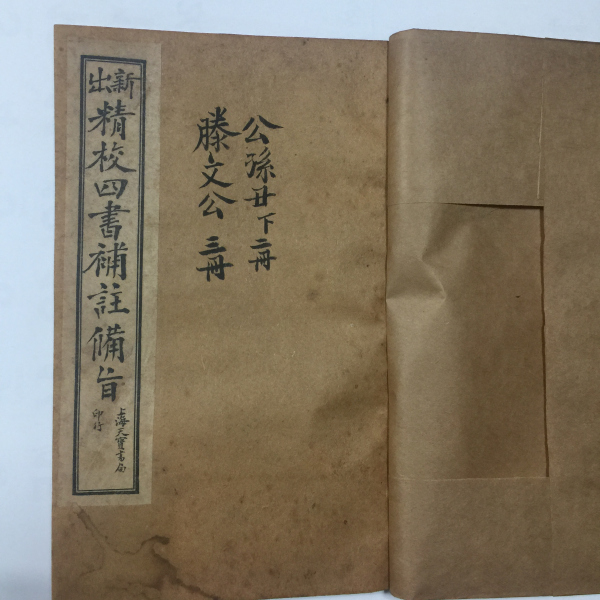 公孫丑下二冊
滕文公三冊
新出
精校四書補註備旨
上海天寶書局
印行